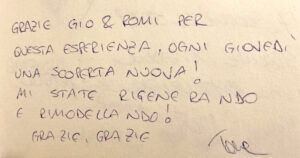 GRAZIE GIO & ROMI PER
QUESTA ESPERIENZA, OGNI GIOVEDÌ
UNA SCOPERTA NUOVA!
MI STATE RIGENERANDO
E RIMODELLANDO!
GRAZIE, GRAZIE